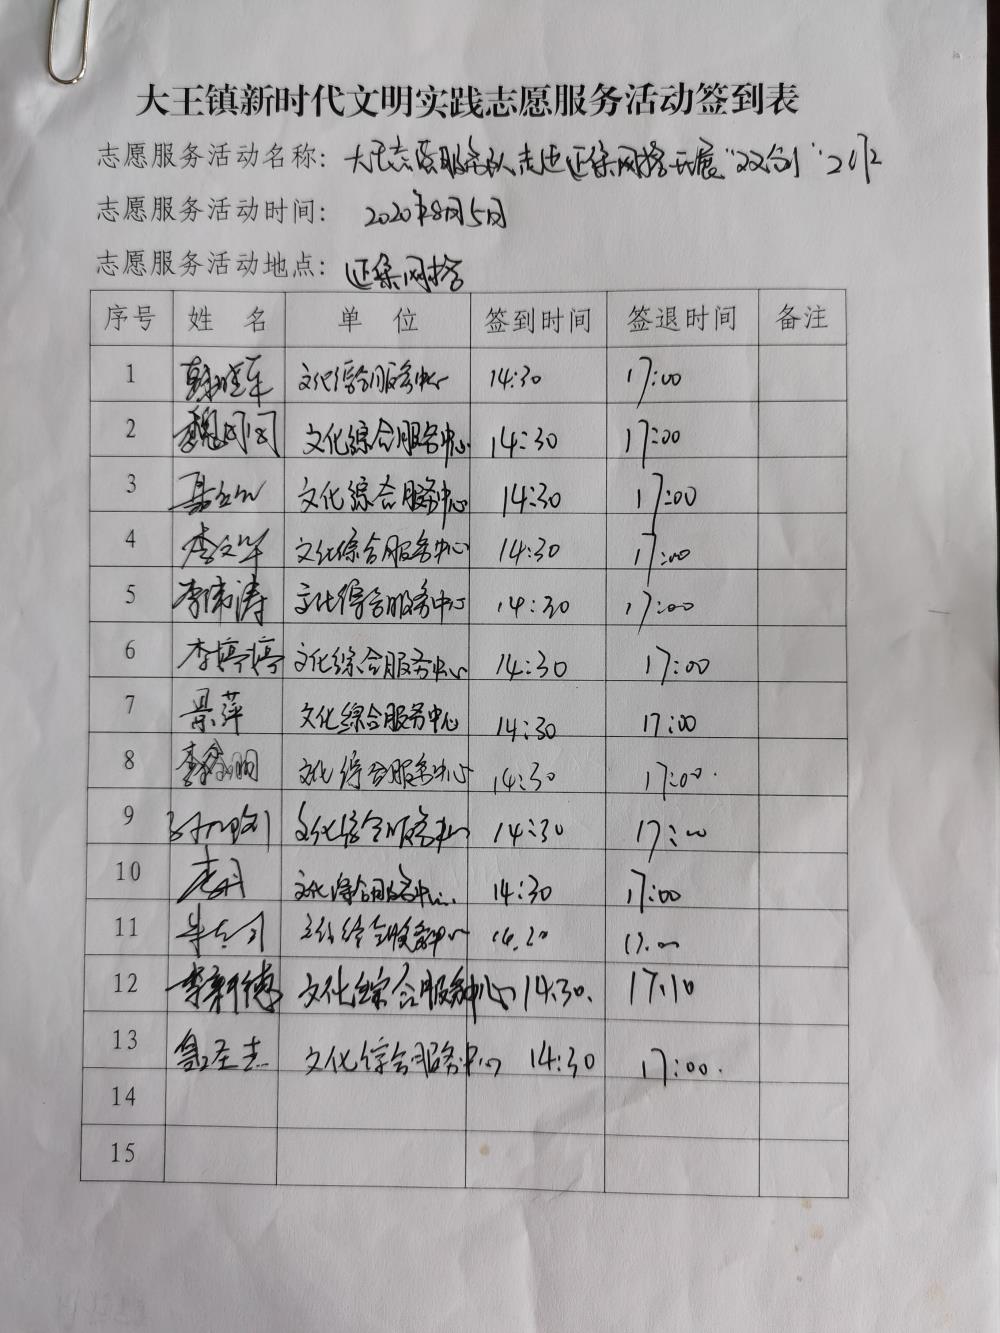 大王镇新时代文明实践志愿服务活动签到表
志愿服务活动名称: 大王志愿服务队走进延集网格开展"双创"工作
志愿服务活动时间: 2020年8月5日
志愿服务活动地点: 延集网格
序号 姓 名 单 位 签到时间 签退时间 备注
1 文化综合服务中心 14:30 17:00
2 魏闪闪 文化综合服务中心 14:30 17:00
3 文化综合服务中心 14:30 17:00
4 李文华 文化综合服务中心 14:30 17:00
5 李伟涛 文化综合服务中心 14:30 17:00
6 李婷婷 文化综合服务中心 14:30 17:00
7 景萍 文化综合服务中心 14:30 17:00
8 文化综合服务中心 14:30 17:00.
9 文化综合服务中心 14:30 17:00
10 文化综合服务中心 14:30 17:00
11 文化综合服务中心 17:00
12 李新德 文化综合服务中心 14:30. 17:10
13 文化综合服务中心 14:30 17:00.
14
15